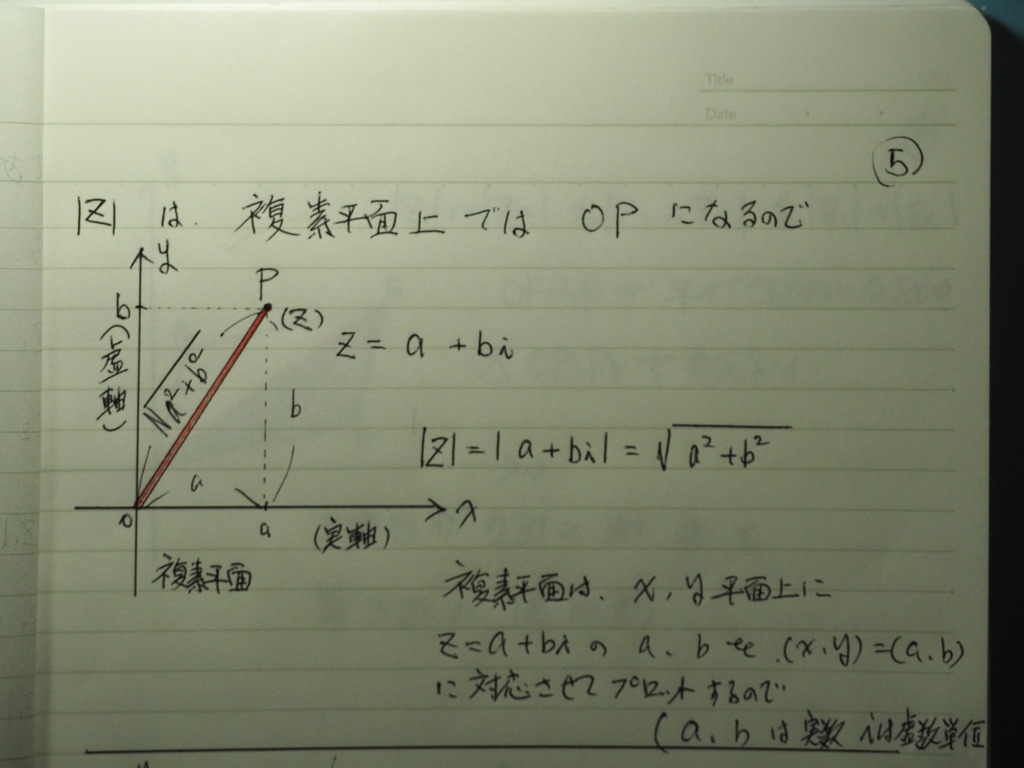 Title
Date
⑤
|Z| は. 複素平面上では OPになるので
y
P
b
(Z)
(虚軸)
√a²+b²
z = a + bi
b
|Z| = |a + bi| = √a²+b²
a
x
o
a
(実軸)
複素平面
複素平面は、x, y 平面上に
z = a + bi の a、b を (x,y)=(a,b)
に対応させてプロットするので
(a、bは実数 iは虚数単位